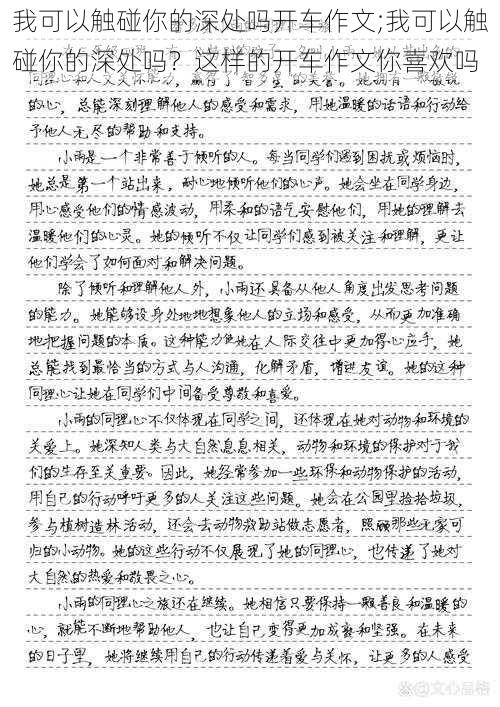 我可以触碰你的深处吗开车作文;我可以触
碰你的深处吗？这样的开车作文你喜欢吗
同理心和人文关怀能力，赢得了"智多星"的美誉。她拥有一颗敏锐
的心，总能深刻理解他人的感受和需求，用她温暖的话语和行动给
予他人无尽的帮助和支持。
小雨是一个非常善于倾听的人。每当同学们遇到困扰或烦恼时，
她总是第一个站出来，耐心地倾听他们的心声。她会坐在同学身边，
用心感受他们的情感波动，用柔和的语气安慰他们，用她的理解去
温暖他们的心灵。她的倾听不仅让同学们感到被关注和理解，更让
他们学会了如何面对和解决问题。
除了倾听和理解他人外，小雨还具备从他人角度出发思考问题
的能力。她能够设身处地地想象他人的立场和感受，从而更加准确
地把握问题的本质。这种能力使她在人际交往中更加得心应手，她
总能找到最恰当的方式与人沟通，化解矛盾，增进友谊。她的这种
同理心让她在同学们中间备受尊敬和喜爱。
小雨的同理心不仅体现在同学之间，还体现在她对动物和环境的
关爱上。她深知人类与大自然息息相关，动物和环境的保护对于我
们的生存至关重要。因此，她经常参加一些环保和动物保护的活动，
用自己的行动呼吁更多的人关注这些问题。她会在公园里捡拾垃圾，
参与植树造林活动，还会去动物救助站做志愿者，照顾那些无家可
归的小动物。她的这些行动不仅展现了她的同理心，也传递了她对
大自然的热爱和敬畏之心。
小雨的同理心之旅还在继续。她相信只要保持一颗善良和温暖的
心，就能不断地帮助他人，也让自己变得更加成熟和坚强。在未来
的日子里，她将继续用自己的行动传递着爱与关怀，让更多的人感受
@文心品格